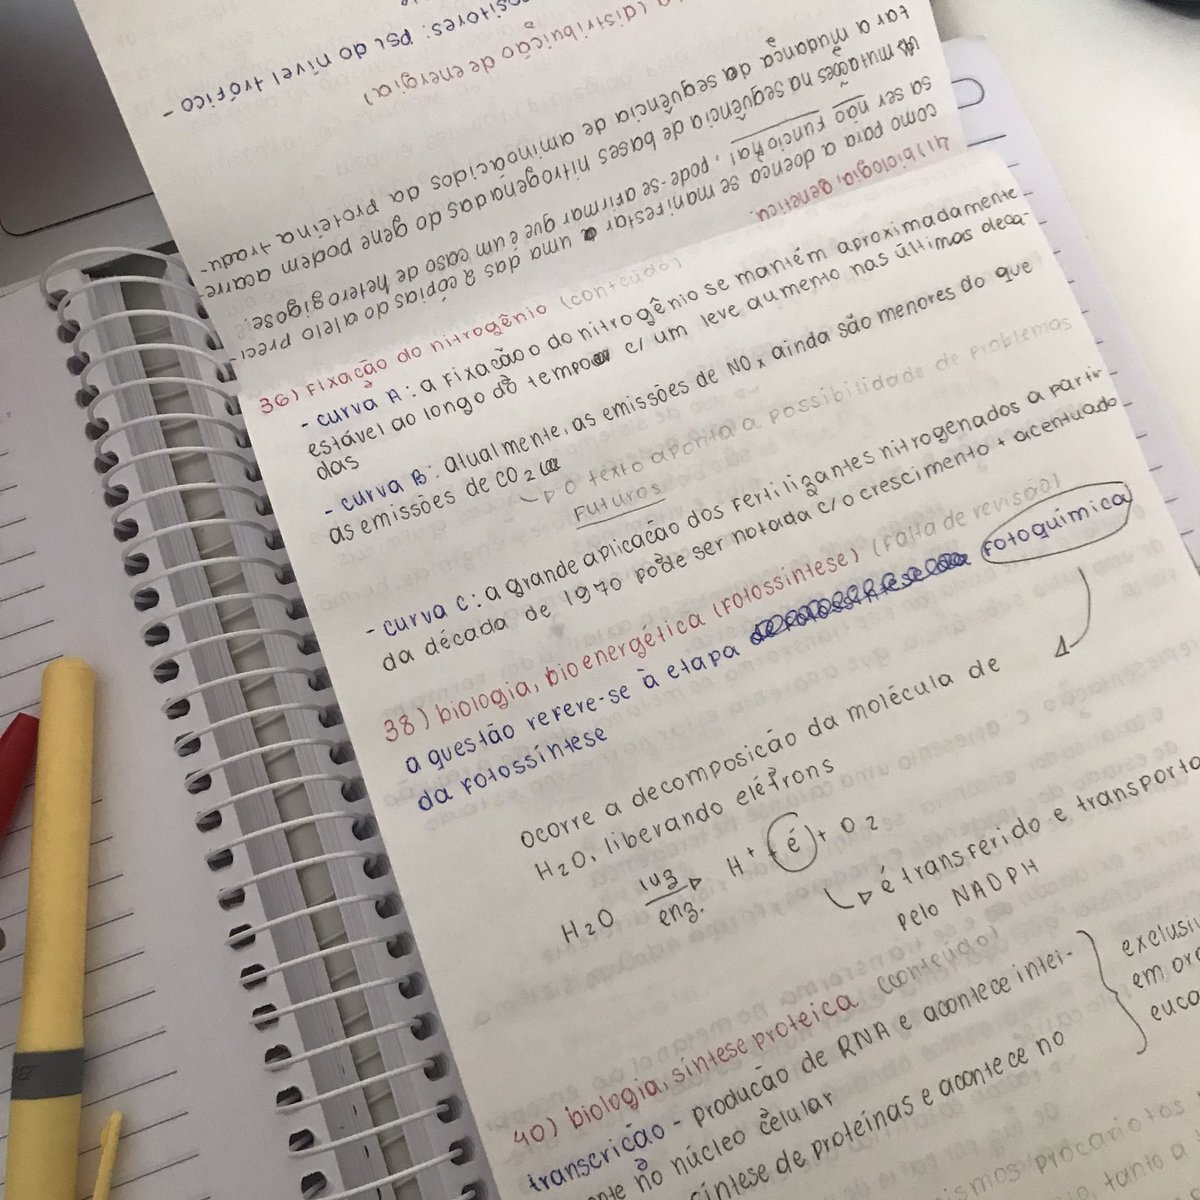 36) Fixação do nitrogênio (conteúdo)
- curva A: a fixação o do nitrogênio se mantém aproximadamente
estável ao longo do tempo c/ um leve aumento nas últimas déca-
das
- curva B: atualmente, as emissões de NOx ainda são menores do que
as emissões de CO2
↳ o texto aponta a possibilidade de problemas
futuros
- curva C: a grande aplicação dos fertilizantes nitrogenados a partir
da década de 1970 pôde ser notada c/ o crescimento + acentuado
38) biologia, bioenergética (fotossíntese) (falta de revisão)
a questão refere-se à etapa fotoquímica
da fotossíntese
ocorre a decomposição da molécula de
H2O, liberando elétrons
H2O luz enz. → H+ + é + O2
↳ é transferido e transporta
pelo NADPH
40) biologia, síntese proteica (conteúdo)
transcrição - produção de RNA e acontece intei-
ente no núcleo celular
síntese de proteínas e acontece no
exclusiv
em org
euca
ismos procariotos
tanto a
41) biologia, genética
como para a doença se manifestar uma das 2 cópias do alelo preci-
sa ser não funcional, pode-se afirmar que é um caso de heterozigose.
As mutações na sequência de bases nitrogenadas do gene podem acarre-
tar a mudança da sequência de aminoácidos da proteína tradu-
(distribuição de energia)
ositores: psL do nível trófico -